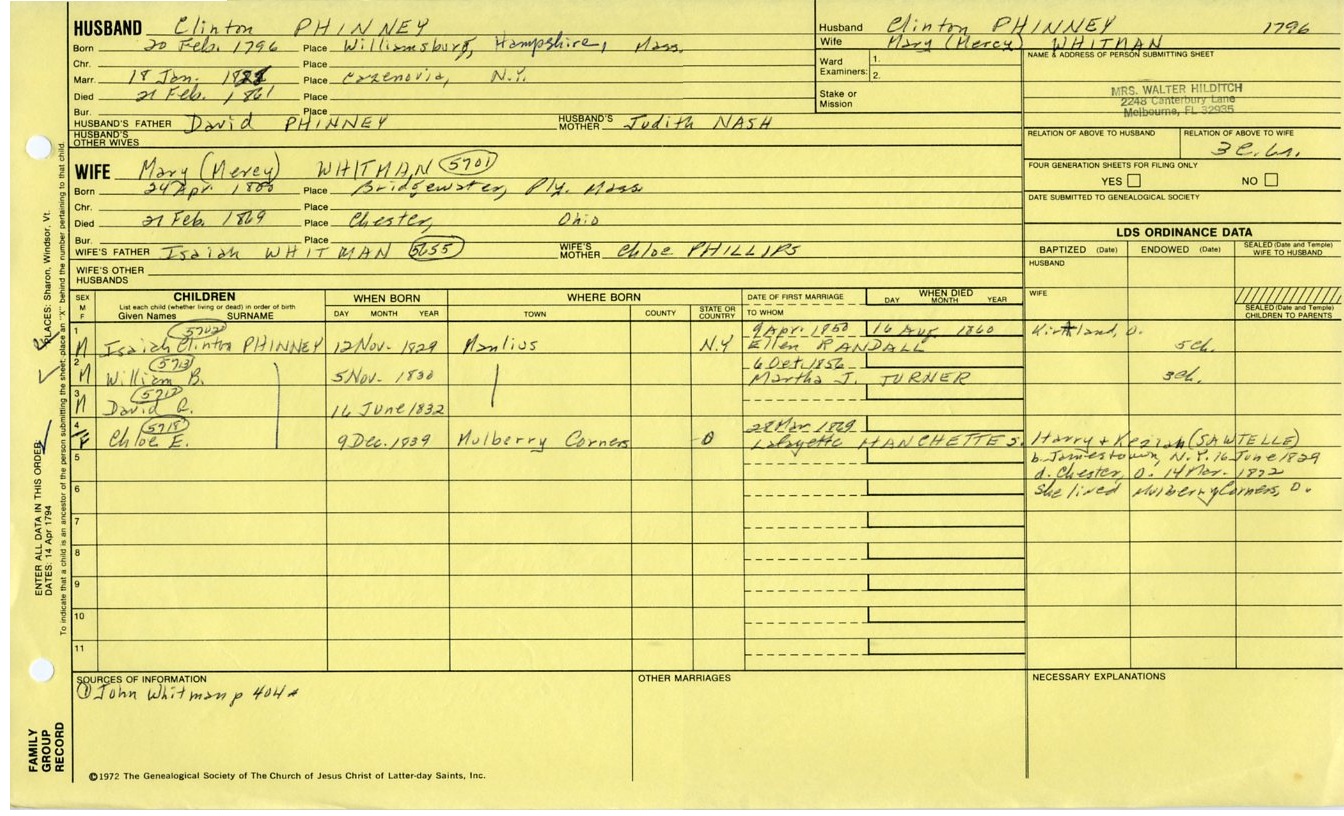 HUSBAND Clinton PHINNEY
Born 20 Feb. 1796 Place Williamsburg, Hampshire, Mass.
Chr. Place
Marr. 18 Jan. Place Cazenovia, N.Y.
Died 21 Feb. 1861 Place
Bur. Place
HUSBAND'S FATHER David PHINNEY HUSBAND'S MOTHER Judith NASH
HUSBAND'S OTHER WIVES
WIFE Mary (Mercy) WHITMAN 5701
Born 24 Apr. 1800 Place Bridgewater, Ply. Mass
Chr. Place
Died 21 Feb. 1869 Place Chester, Ohio
Bur. Place
WIFE'S FATHER Isaiah WHITMAN 5655 WIFE'S MOTHER Chloe PHILLIPS
WIFE'S OTHER HUSBANDS
Husband Clinton PHINNEY 1796
Wife Mary (Mercy) WHITMAN
Ward Examiners: 1. 2.
Stake or Mission
NAME & ADDRESS OF PERSON SUBMITTING SHEET
MRS. WALTER HILDITCH
2248 Canterbury Lane
Melbourne, FL 32935
RELATION OF ABOVE TO HUSBAND RELATION OF ABOVE TO WIFE
FOUR GENERATION SHEETS FOR FILING ONLY
YES NO
DATE SUBMITTED TO GENEALOGICAL SOCIETY
LDS ORDINANCE DATA
BAPTIZED (Date) ENDOWED (Date) SEALED (Date and Temple) WIFE TO HUSBAND
HUSBAND
WIFE
SEALED (Date and Temple) CHILDREN TO PARENTS
SEX M F CHILDREN List each child (whether living or dead) in order of birth Given Names SURNAME WHEN BORN DAY MONTH YEAR WHERE BORN TOWN COUNTY STATE OR COUNTRY DATE OF FIRST MARRIAGE TO WHOM WHEN DIED DAY MONTH YEAR
5702 9 Apr. 1850 16 Aug 1860
1 M Isaiah Clinton PHINNEY 12 Nov. 1829 Manlius N.Y Ellen RANDALL Kirtland, O. 5ch.
5713 6 Oct. 1856
2 M William B. 5 Nov. 1830 Martha J. TURNER 3ch.
5717
3 M David R. 16 June 1832
5718 28 Mar. 1869
4 F Chloe E. 9 Dec. 1839 Mulberry Corners O Lafayette HANCHETTE S. Harry & Keziah (SAWTELLE)
5 b. Jamestown, N.Y. 16 June 1829
d. Chester, O. 14 Mar. 1872
6 She lived Mulberry Corners, O.
7
8
9
10
11
SOURCES OF INFORMATION
① John Whitman p 404
OTHER MARRIAGES
NECESSARY EXPLANATIONS
©1972 The Genealogical Society of The Church of Jesus Christ of Latter-day Saints, Inc.
FAMILY GROUP RECORD
ENTER ALL DATA IN THIS ORDER
DATES: 14 Apr 1794
PLACES: Sharon, Windsor, Vt.
To indicate that a child is an ancestor of the person submitting the sheet, place an "X" behind the number pertaining to that child.